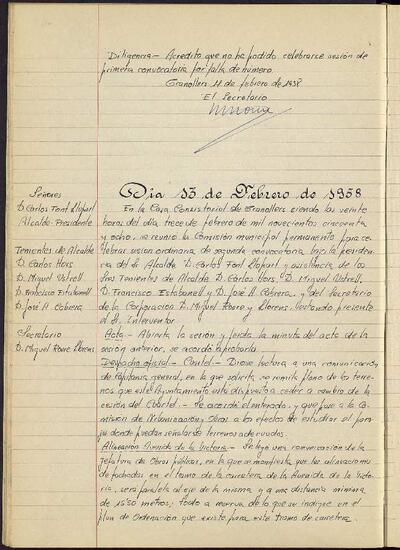 Diligencia.- Acredito que no ha podido celebrarse sesión de
primera convocatoria por falta de número
Granollers 11 de febrero de 1958
El Secretario
Día 13 de Febrero de 1958
Señores
D. Carlos Font Llopart
Alcalde-Presidente
Tenientes de Alcalde
D. Carlos
D. Miguel
D. Francisco Estabanell
D. José A. Cabrera
Secretario
D. Miguel Llorens
En la Casa Consistorial de Granollers siendo las veinte
horas del día trece de febrero de mil novecientos cincuenta
y ocho, se reunió la Comisión municipal permanente para ce-
lebrar sesión ordinaria de segunda convocatoria bajo la presiden-
cia del Sr. Alcalde D. Carlos Font Llopart y asistencia de los
Sres. Tenientes de Alcalde D. Carlos D. Miguel
D. Francisco Estabanell y D. José A. Cabrera, y del Secretario
de la Corporación D. Miguel y Llorens, estando presente
el Sr. Interventor
Acta.- Abierta la sesión y leída la minuta del acta de la
sesión anterior, se acordó aprobarla.
Despacho oficial.- Cuartel.- Dióse lectura a una comunicación
de Capitanía general, en la que solicita se remita plano de los terre-
nos que este Ayuntamiento está dispuesto a ceder a cambio de la
cesión del Cuartel.- Se acordó el enterado, y que pase a la Co-
misión de Urbanización y Obras a los efectos de estudiar el para-
je donde puedan señalarse terrenos adecuados.
Alineación Avenida de la Victoria.- Se leyó una comunicación de la
Jefatura de Obras públicas, en la que se manifiesta que las alineaciones
de fachadas en el tramo de la carretera de la Avenida de la Victo-
ria, será paralela al eje de la misma y a una distancia mínima
de 15'50 metros; todo a reserva de lo que se indique en el
plan de Ordenación que existe para este tramo de carretera.